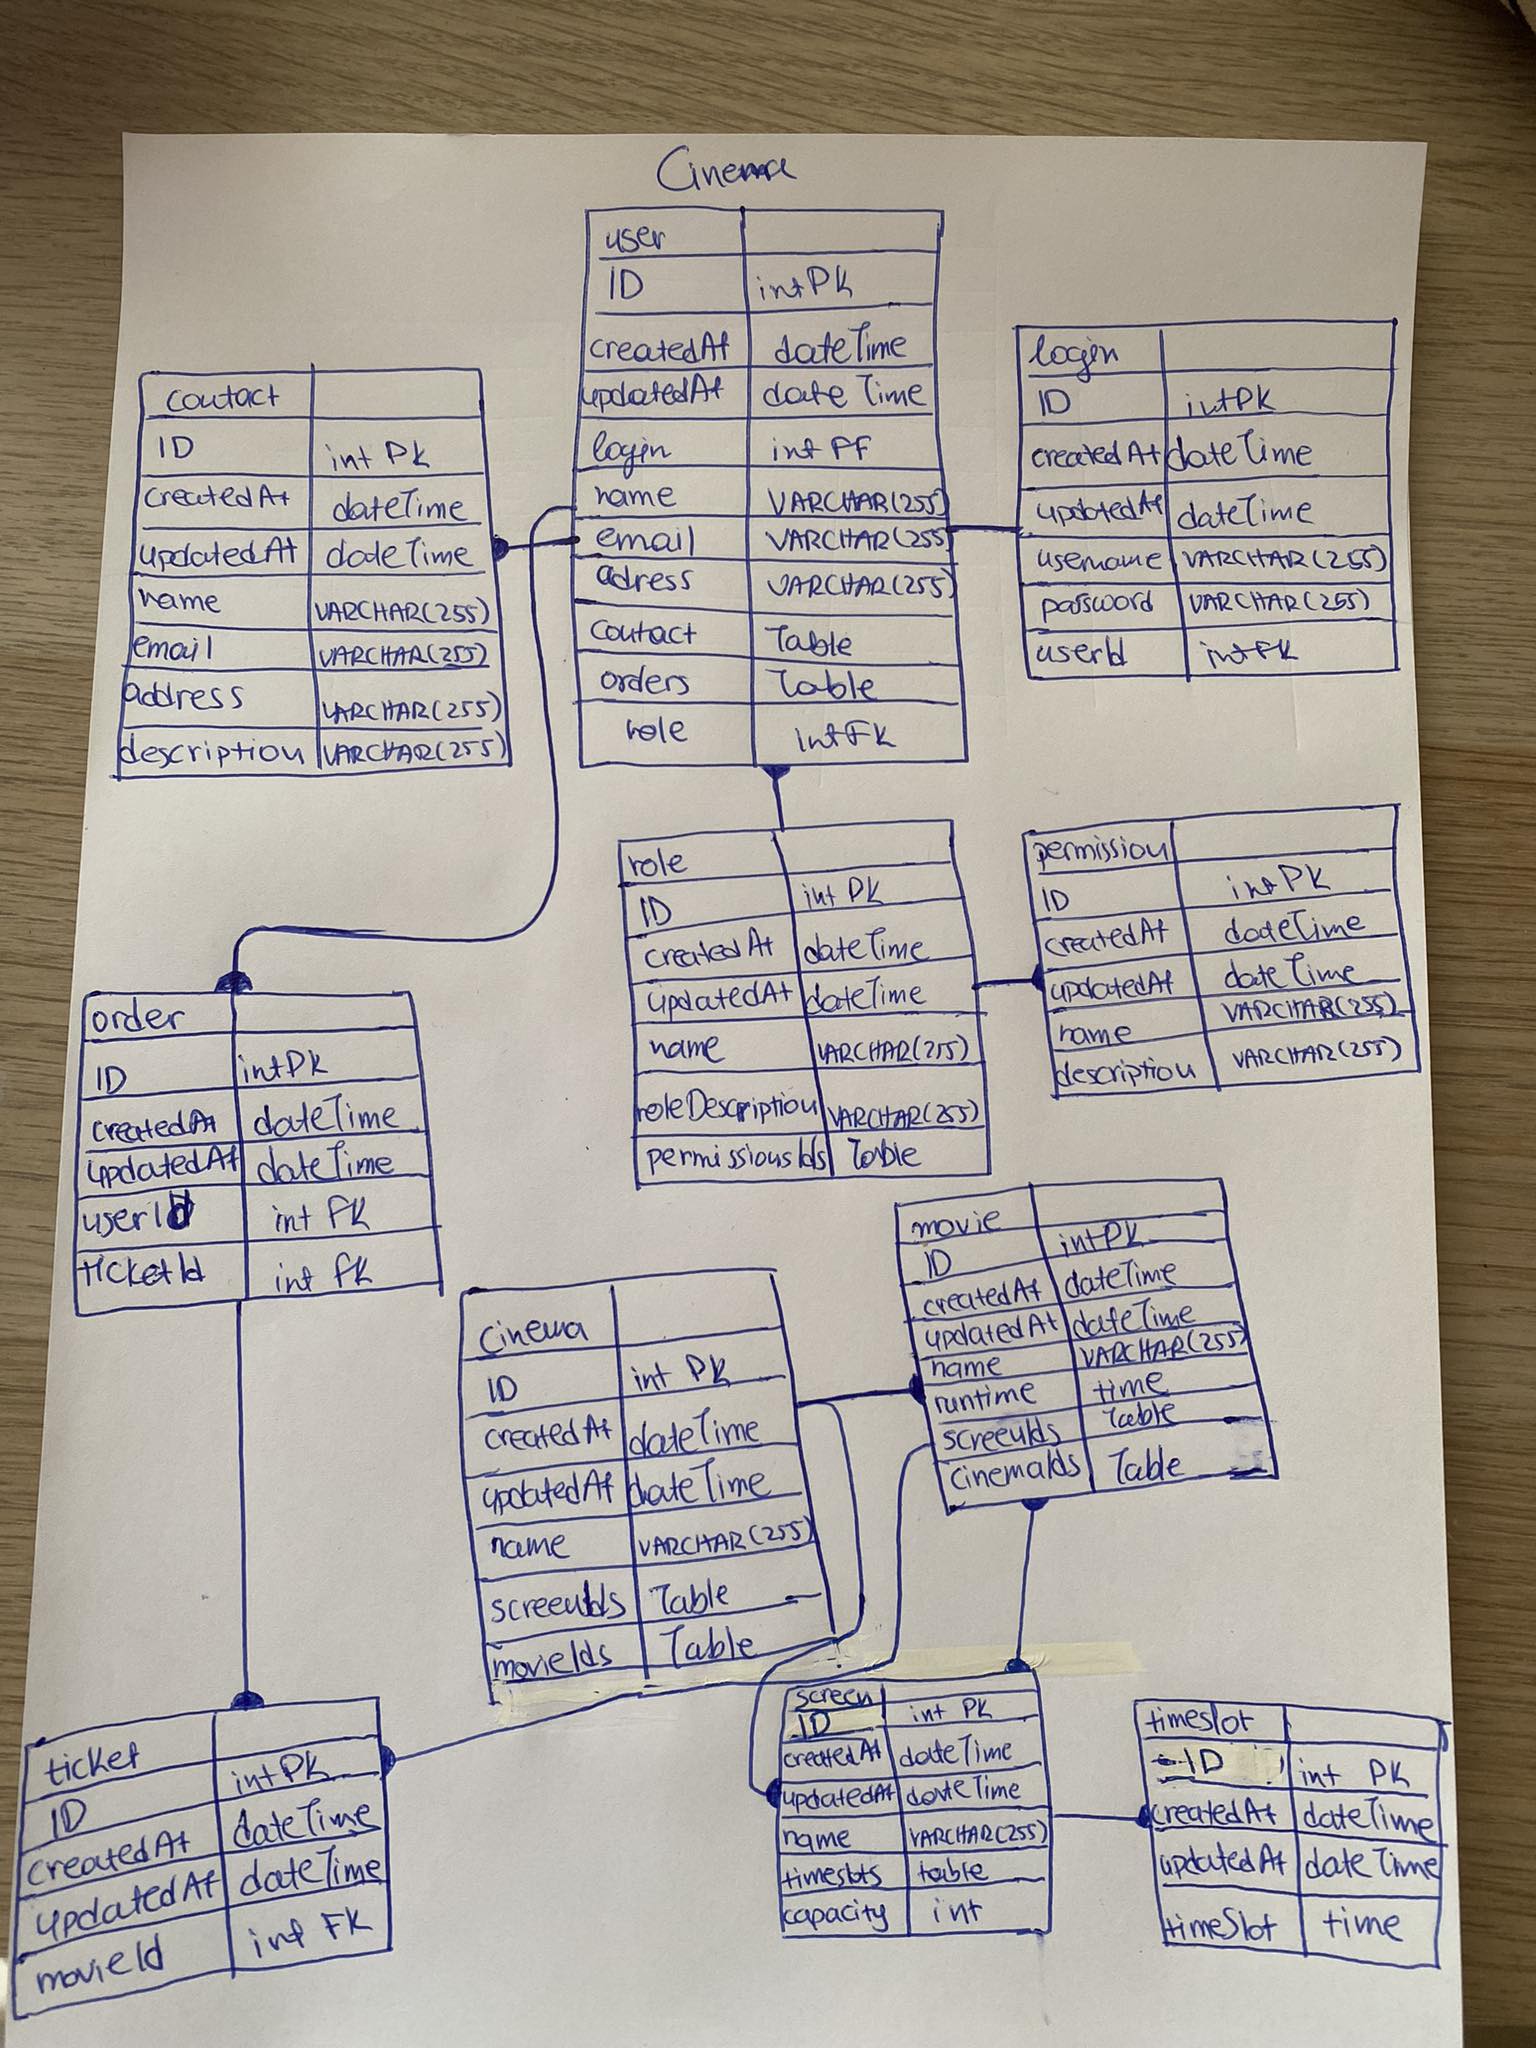 Cinema
user
ID int PK
createdAt dateTime
updatedAt dateTime
login int FF
name VARCHAR(255)
email VARCHAR(255)
adress VARCHAR(255)
contact Table
orders Table
role int FK
login
ID int PK
createdAt dateTime
updatedAt dateTime
username VARCHAR(255)
password VARCHAR(255)
userId int FK
contact
ID int PK
createdAt dateTime
updatedAt dateTime
name VARCHAR(255)
email VARCHAR(255)
address VARCHAR(255)
description VARCHAR(255)
role
ID int PK
createdAt dateTime
updatedAt dateTime
name VARCHAR(255)
roleDescription VARCHAR(255)
permissionsIds Table
permission
ID int PK
createdAt dateTime
updatedAt dateTime
name VARCHAR(255)
description VARCHAR(255)
order
ID int PK
createdAt dateTime
updatedAt dateTime
userId int FK
ticketId int FK
cinema
ID int PK
createdAt dateTime
updatedAt dateTime
name VARCHAR(255)
screenIds Table
movieIds Table
movie
ID int PK
createdAt dateTime
updatedAt dateTime
name VARCHAR(255)
runtime time
screenIds Table
cinemaIds Table
ticket
ID int PK
createdAt dateTime
updatedAt dateTime
movieId int FK
screen
ID int PK
createdAt dateTime
updatedAt dateTime
name VARCHAR(255)
timeslots table
capacity int
timeslot
ID int PK
createdAt dateTime
updatedAt dateTime
timeSlot time